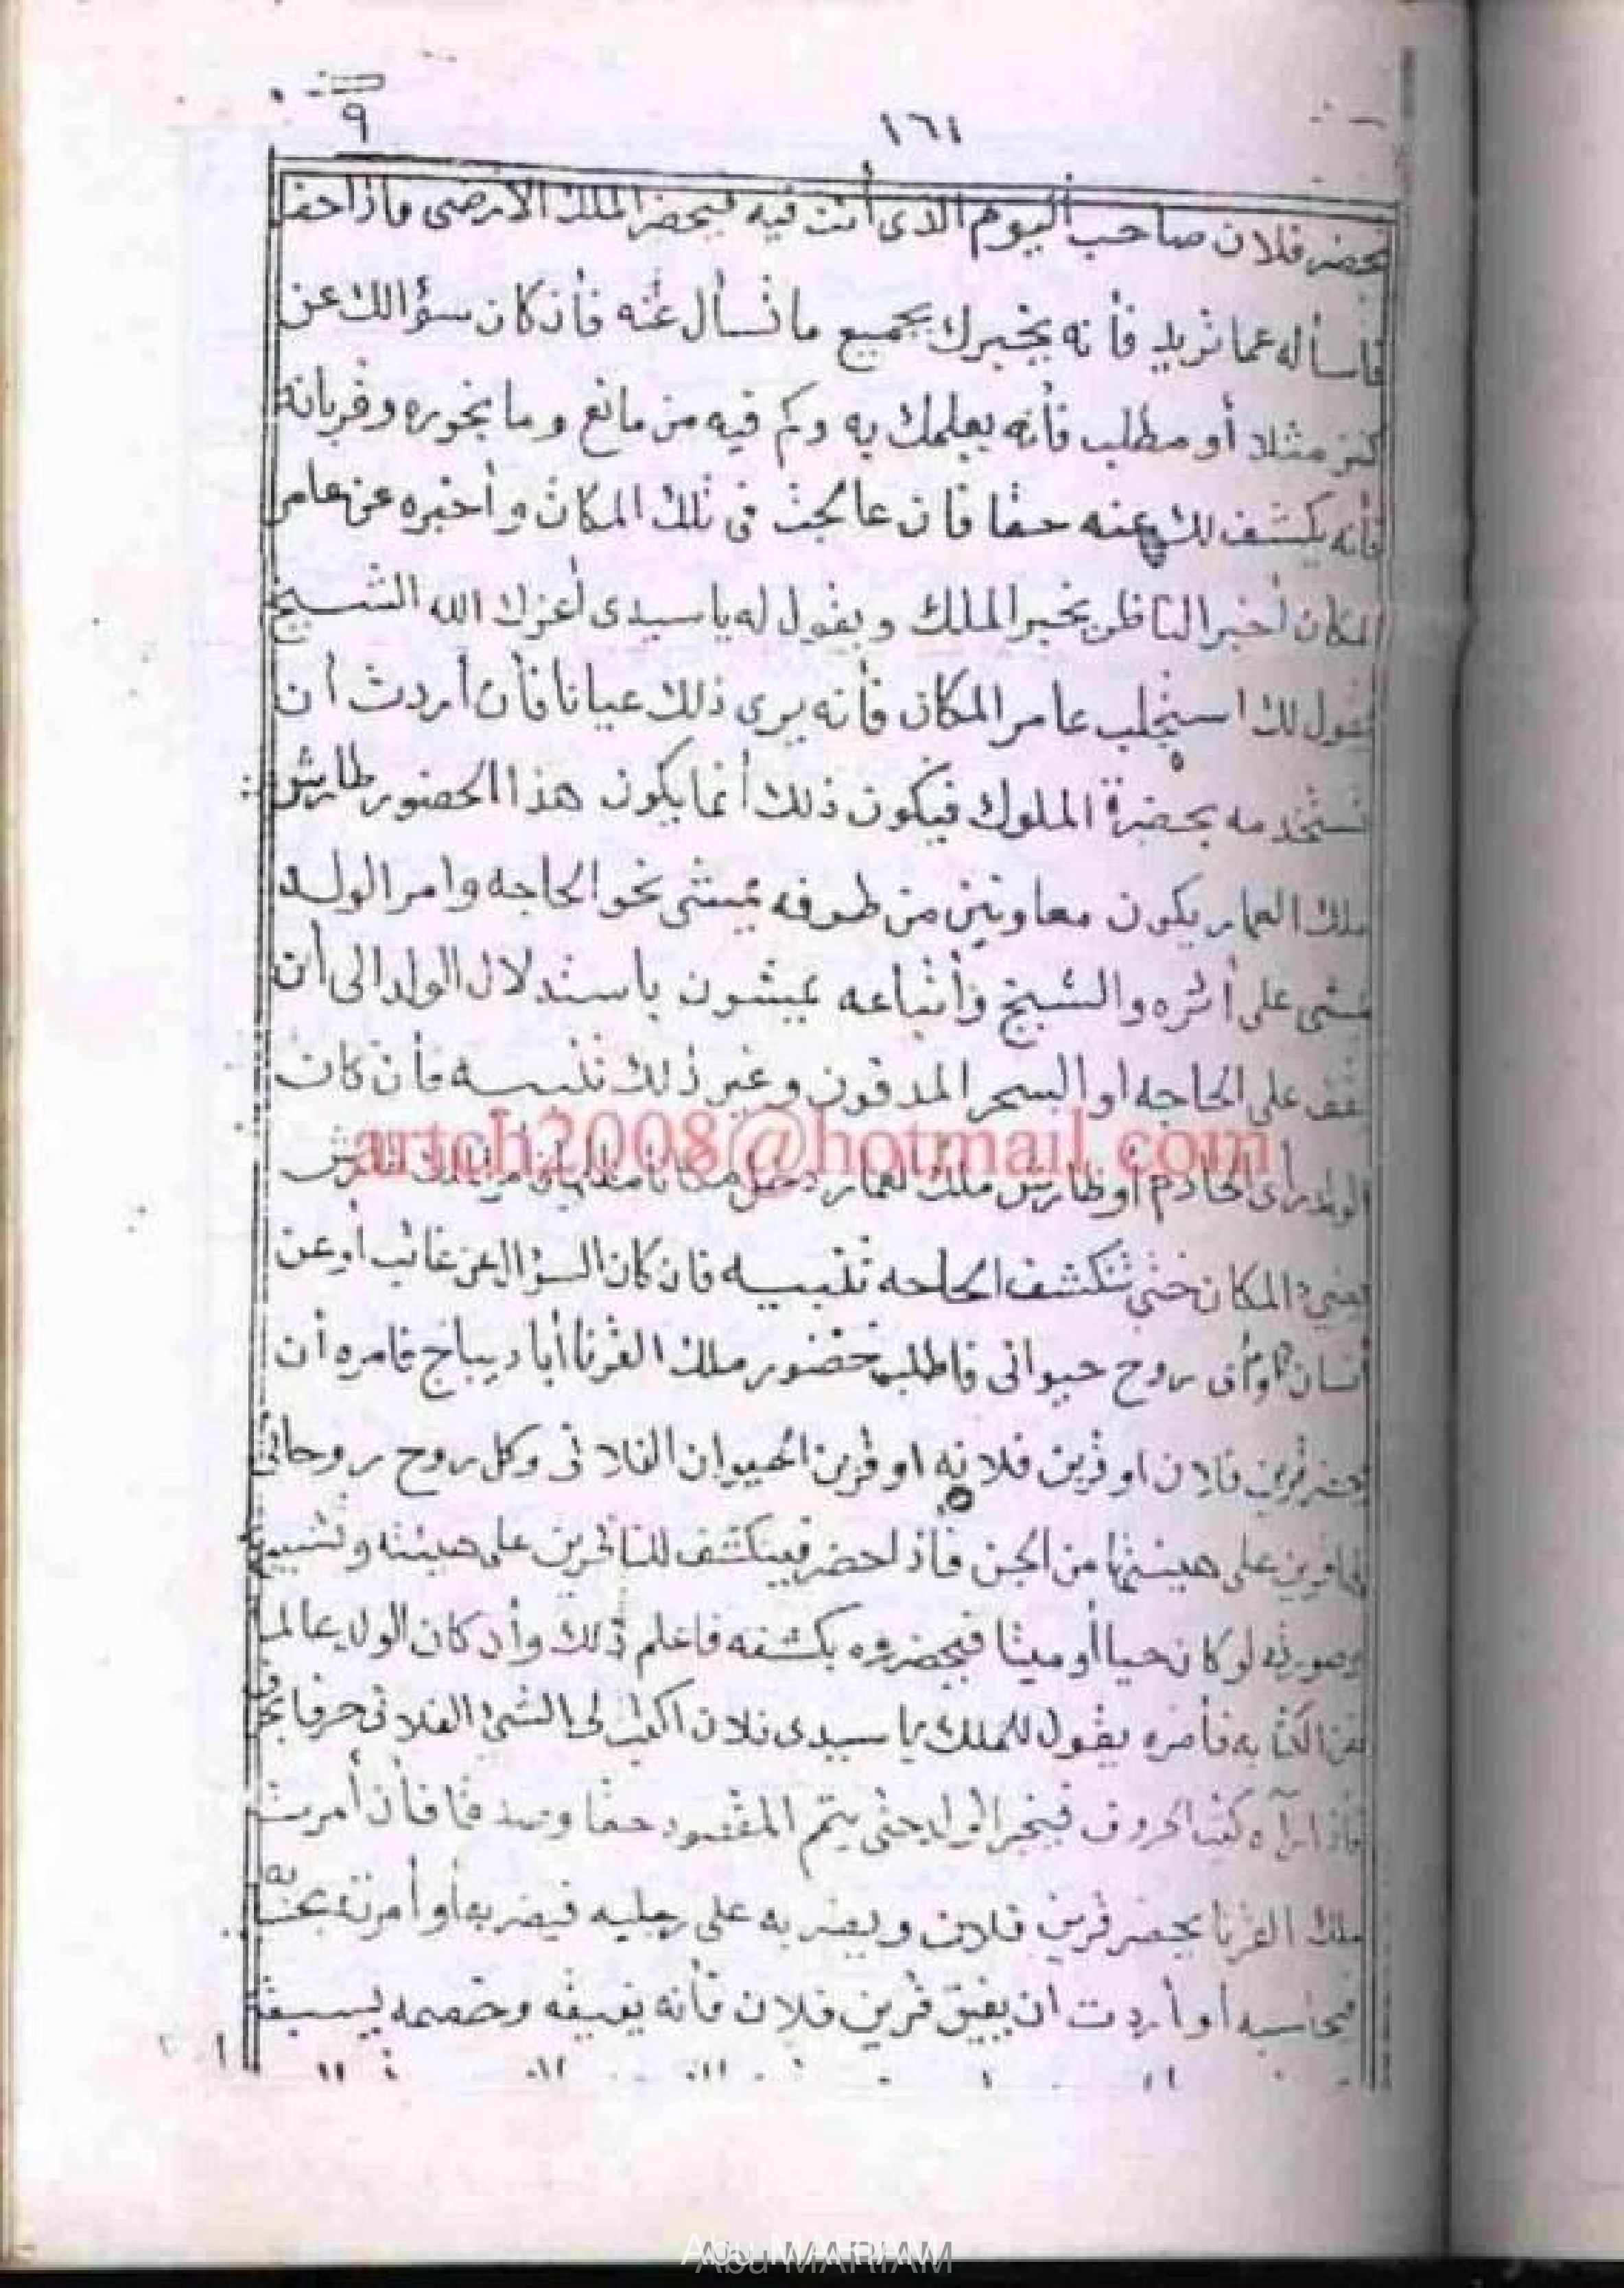 ٩
١٦١
يحضر فلان صاحب اليوم الذى أنت فيه فيحضر الملك الارضى فاذا حضر
فاسأله عما تريد فأنه يخبرك بجميع ما تسأل عنه فأن كان سؤالك عن
كنز مثلا أو مطلب فأنه يعلمك به وكم فيه من مانع وما بخوره وقربانه
فأنه يكشف لك عنه حقا فان عالجت فى تلك المكان وأخبره عن عامر
المكان أخبر الناظر يخبر الملك ويقول له يا سيدى أعزك الله الشيخ
يقول لك استجلب عامر المكان فأنه يرى ذلك عيانا فأن أردت أن
تستخدمه بحضرة الملوك فيكون ذلك أنما يكون هذا الحضور طارش
ملك العمار يكون معاونين من طرفه يمشى نحو الحاجه وامر الولد
يمشى على أثره والشيخ وأتباعه يمشون باستدلال الولد الى أن
يقف على الحاجه او السحر المدفون وغير ذلك تنبيه فأن كان
الولد رأى الخادم أو طارش ملك العمار دخل مكانا
المكان حتى تنكشف الحاجه تنبيه فان كان السؤال عن غائب أو عن
أنسان أو أى روح حيوانى فاطلب حضور ملك القرنا أبا ديباج فامره أن
يحضر قرين فلان او قرين فلانه او قرين الحيوان الفلانى وكل روح روحانى
لها قرين على هيئتها من الجن فأذا حضر فينكشف للناظرين على هيئته
وصورته لو كان حيا أو ميتا فيحضروه بكشفه فاعلم ذلك وأن كان الولد عالما
بفن الكتابه فأمره يقول للملك يا سيدى فلان اكتب لى الشئ الفلانى حرفا بحرف
فأذا رآه كتب الحروف فيخبر الولد حتى يتم المقصود حقا وصدقا فأن أمرت
ملك القرنا يحضر قرين فلان ويضربه على رجليه فيضربه أو أمرته بحبسه
فيحبسه أو أردت ان يفيق قرين فلان فأنه يفيقه وخصمه
artch2008@hotmail.com
Abu MARIAM